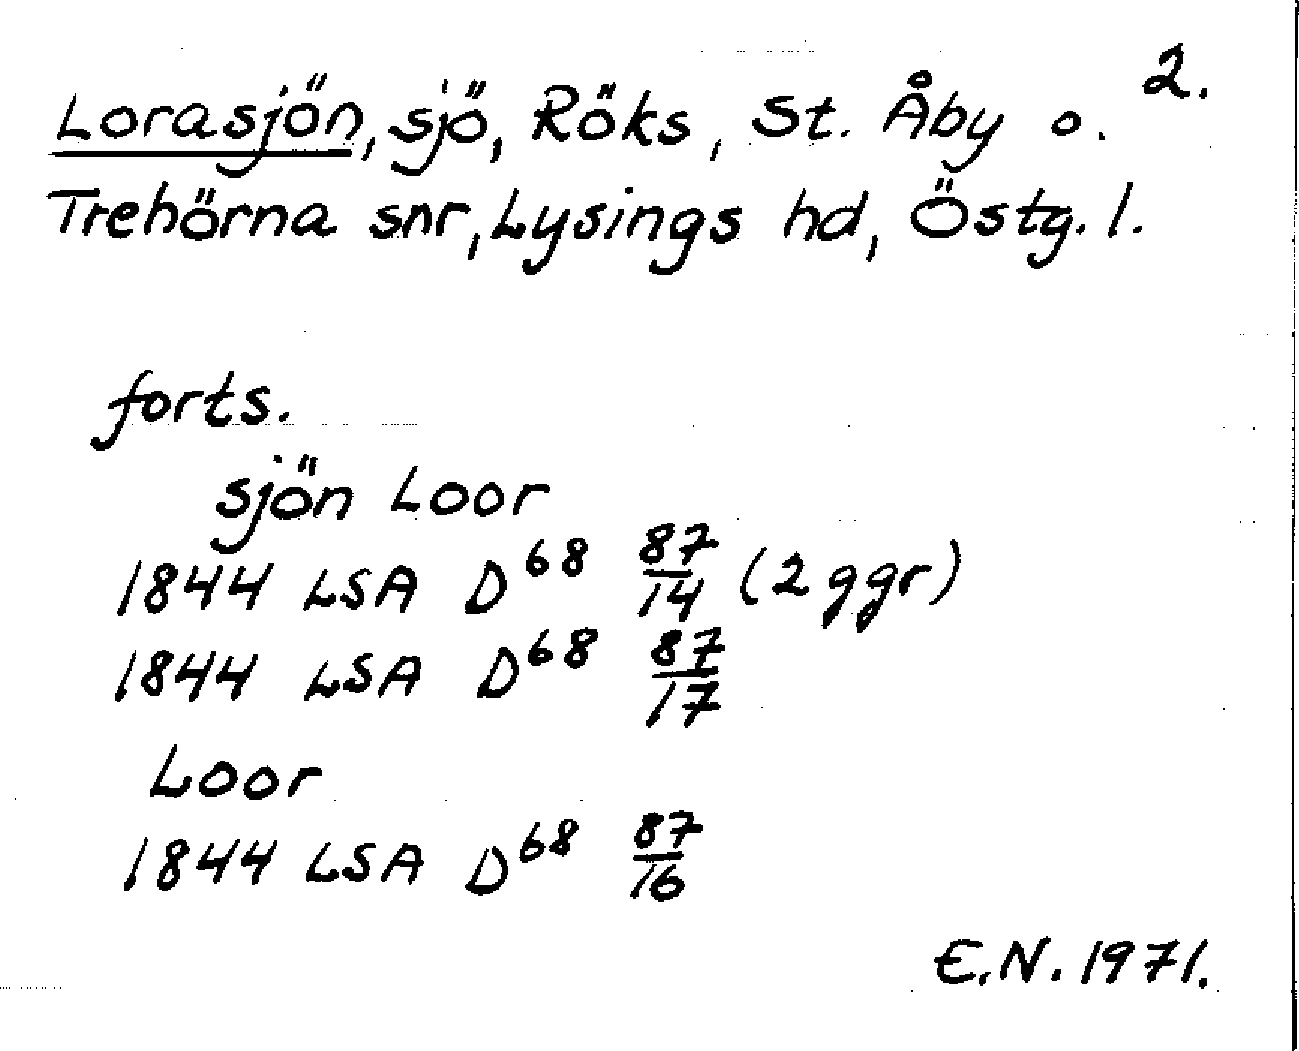 2.
Lorasjön, sjö, Röks, St. Åby o.
Trehörna snr, Lysings hd, Östg. l.
forts.
sjön Loor
1844 LSA D⁶⁸ 87/14 (2 ggr)
1844 LSA D⁶⁸ 87/17
Loor
1844 LSA D⁶⁸ 87/16
E.N. 1971.